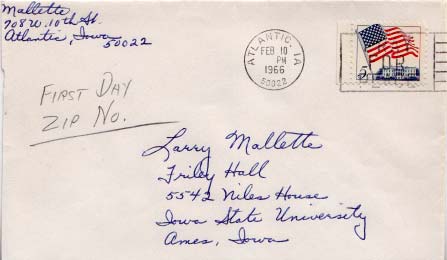 Mallette
708 W. 10th St.
Atlantic, Iowa
50022
ATLANTIC, IA
FEB 10
PM
1966
50022
5¢
FIRST DAY
ZIP NO.
Larry Mallette
Friley Hall
5542 Niles House
Iowa State University
Ames, Iowa